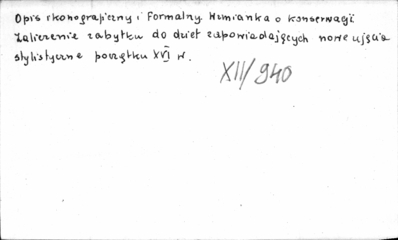 Opis ikonograficzny i formalny. Wzmianka o konserwacji
Zaliczenie zabytku do dzieł zapowiadających nowe ujęcie
stylistyczne początku XVI w.
XII/940